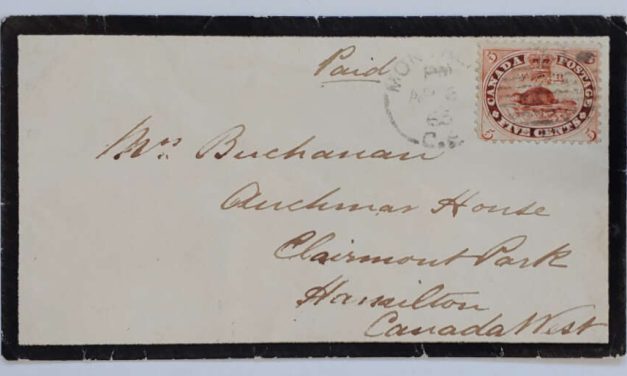 Paid
CANADA POSTAGE
5 5
FIVE CENTS
5 5
PM
C.E
Mrs. Buchanan
Auchmar House
Clairmont Park
Hamilton
Canada West